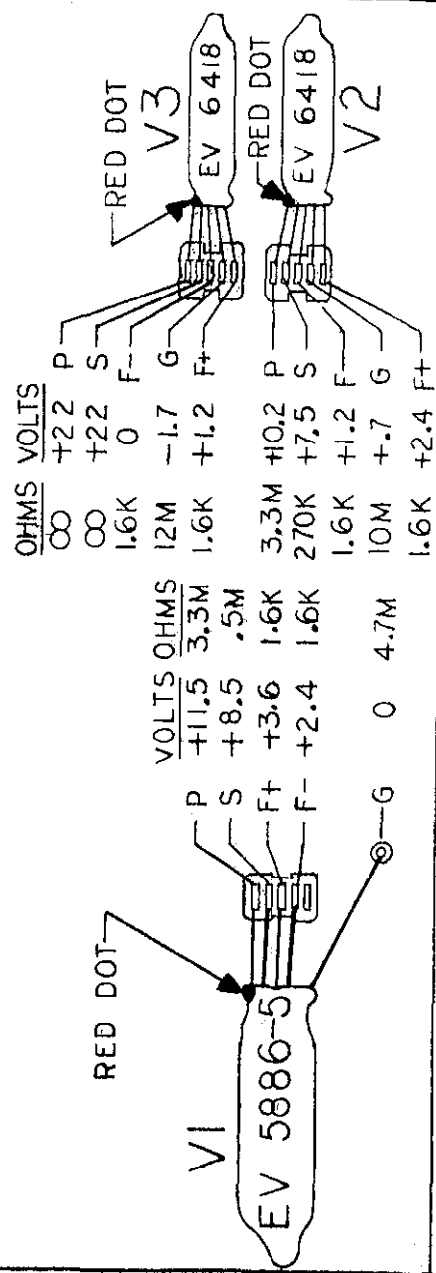 V1
RED DOT
EV 5886-5
VOLTS OHMS
P +11.5 3.3M
S +8.5 .5M
F+ +3.6 1.6K
F- +2.4 1.6K
G 0 4.7M
OHMS VOLTS
∞ +22 P
∞ +22 S
1.6K 0 F-
12M -1.7 G
1.6K +1.2 F+
RED DOT
V3
EV 6418
3.3M +10.2 P
270K +7.5 S
1.6K +1.2 F-
10M +.7 G
1.6K +2.4 F+
RED DOT
EV 6418
V2